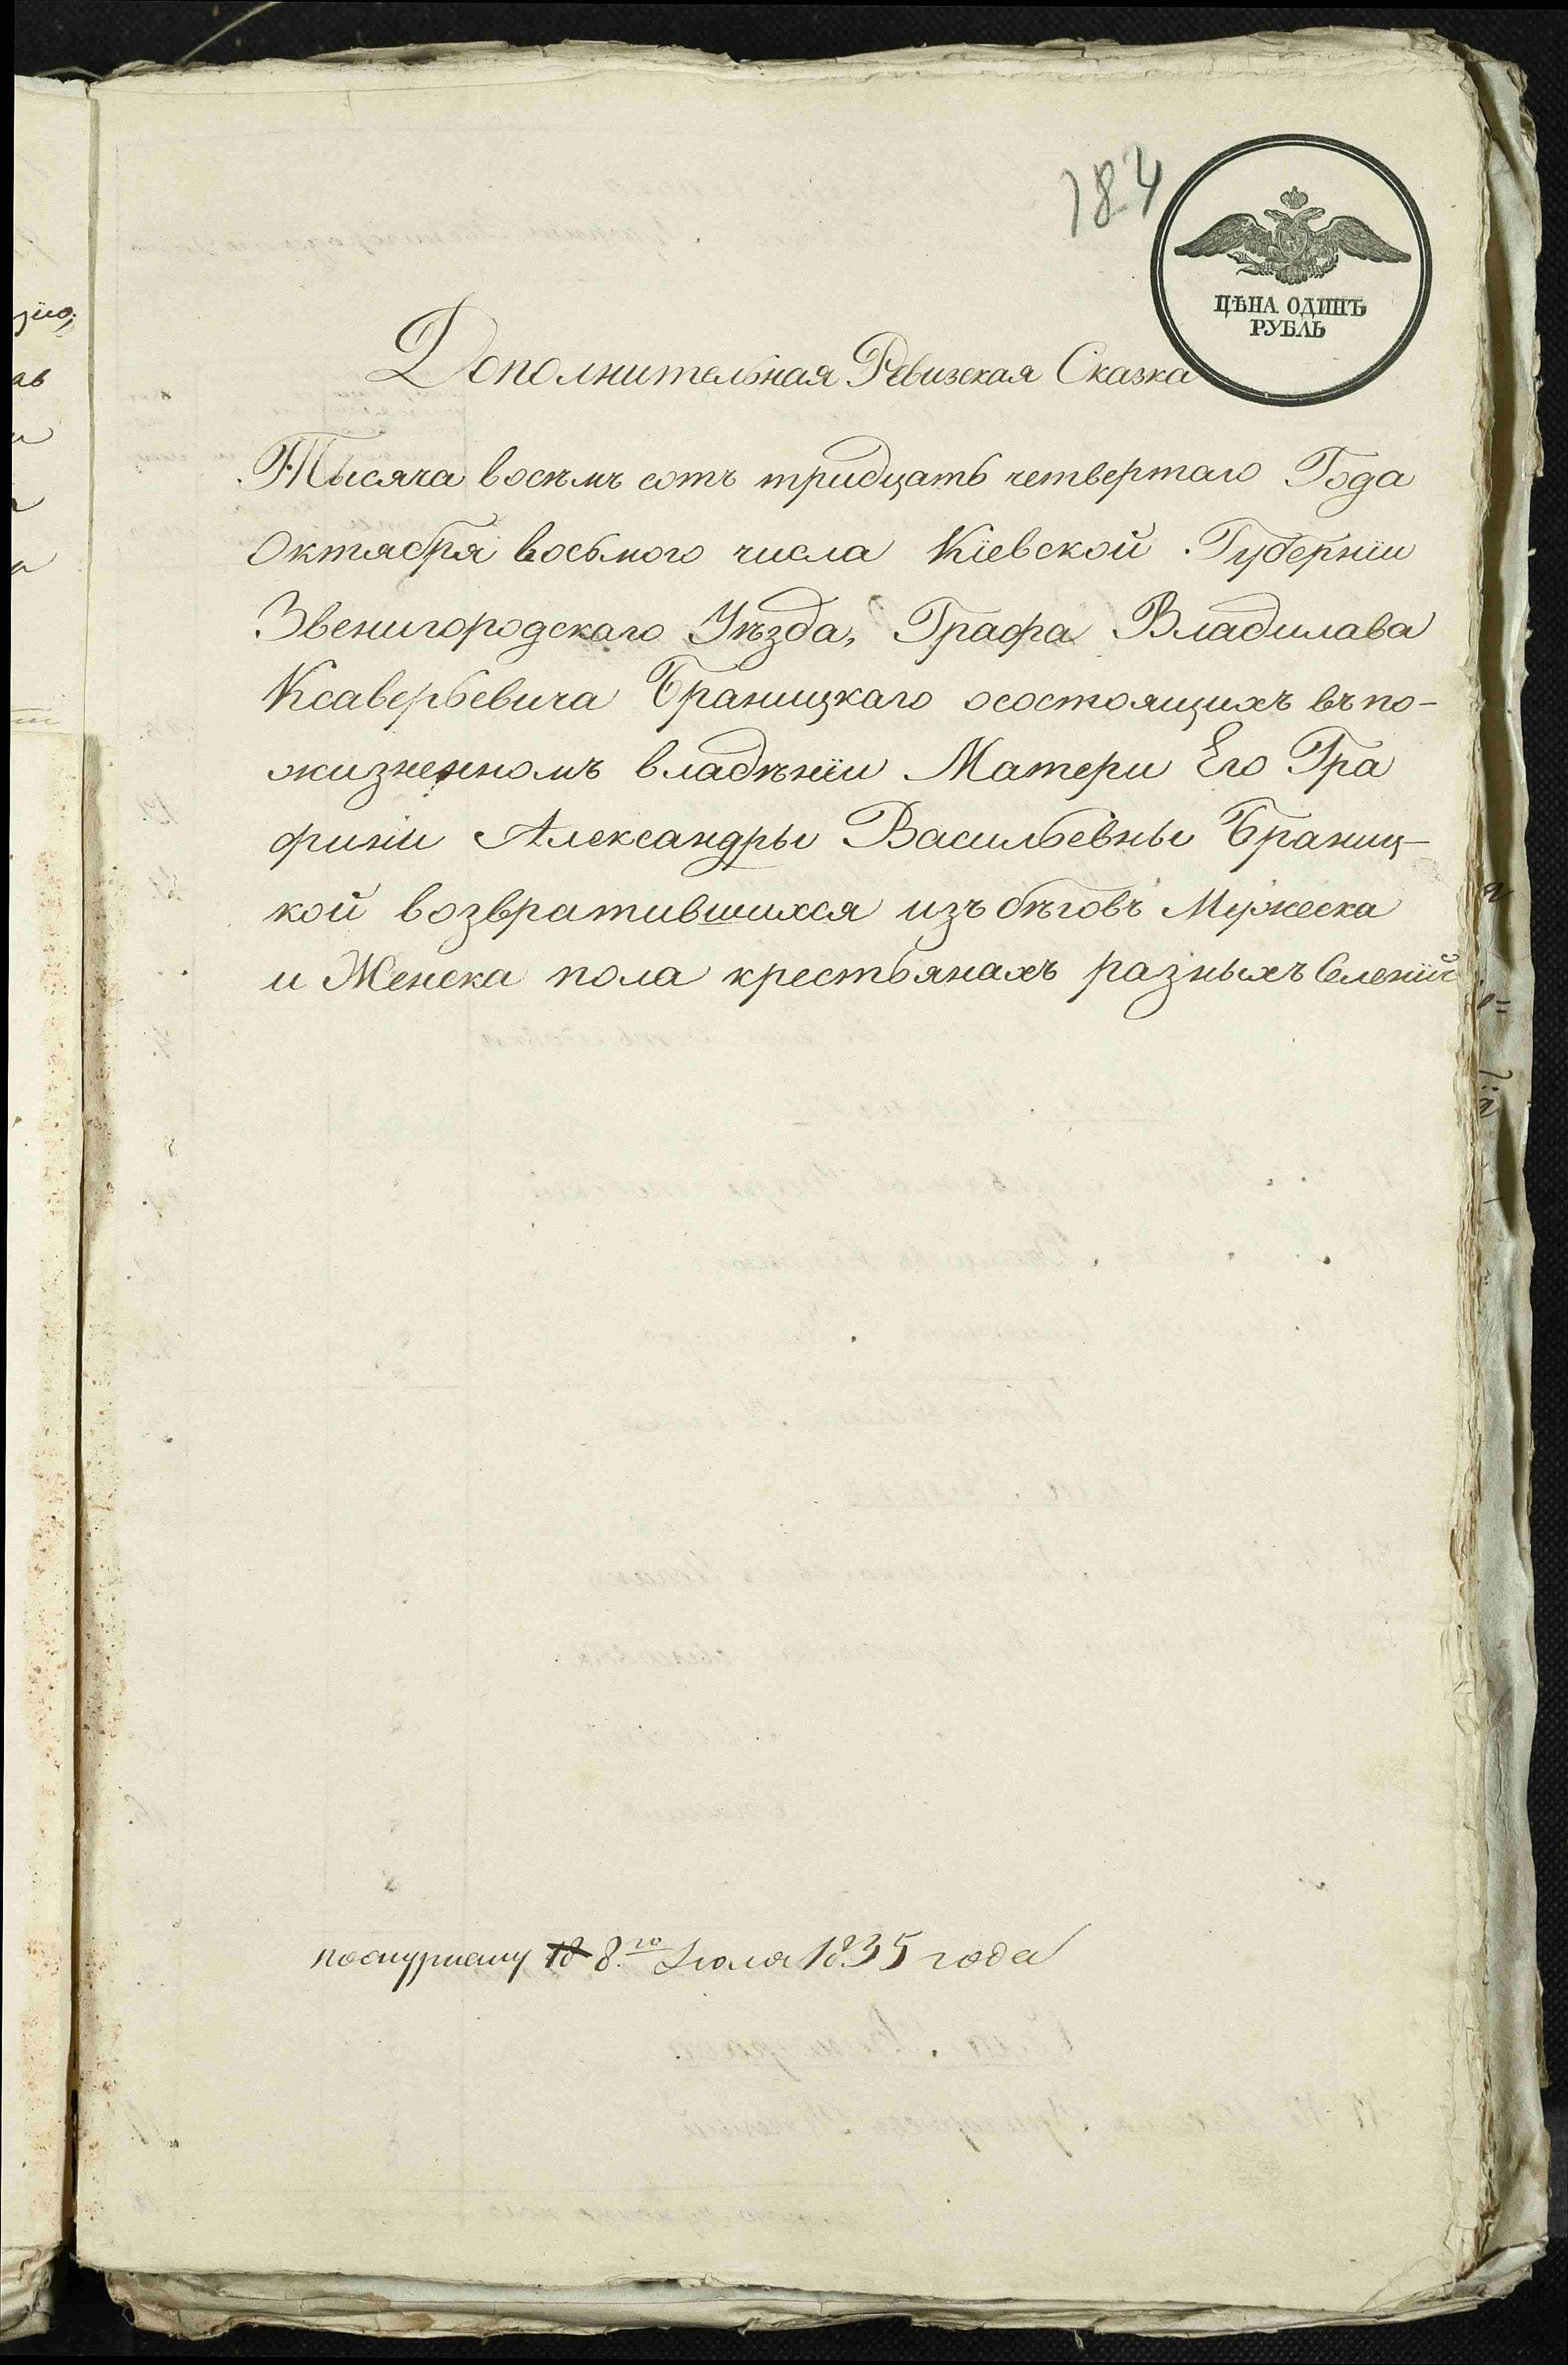 184
ЦѢНА ОДИНЪ
РУБЛЬ
Дополнительная Ревизская Сказка
Тысяча восѣмъ сотъ тридцать четвертаго Года
Октября восьмого числа Кіевской Губерніи
Звенигородскаго Уѣзда, Графа Владилава
Ксаверьевича Браницкаго осостоящихъ въ по-
жизненномъ владѣніи Матери Его Гра
фини Александры Васильевны Браниц-
кой возвратившихся изъ бѣговъ Мужеска
и Женска пола крестьянахъ разныхъ Селеній
8.го Іюля 1835 года